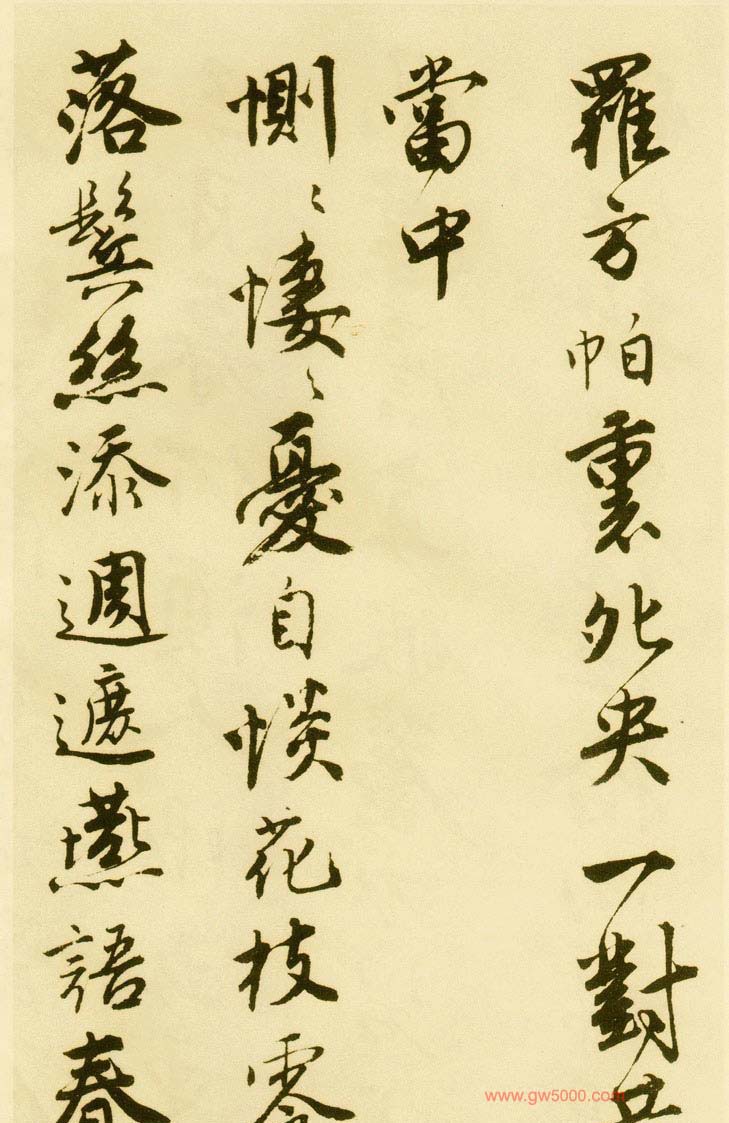 羅方帕裹夗央一對
當中
惻〻悽〻憂自惔花枝零
落鬢絲添週遮燕語春
www.gw5000.com